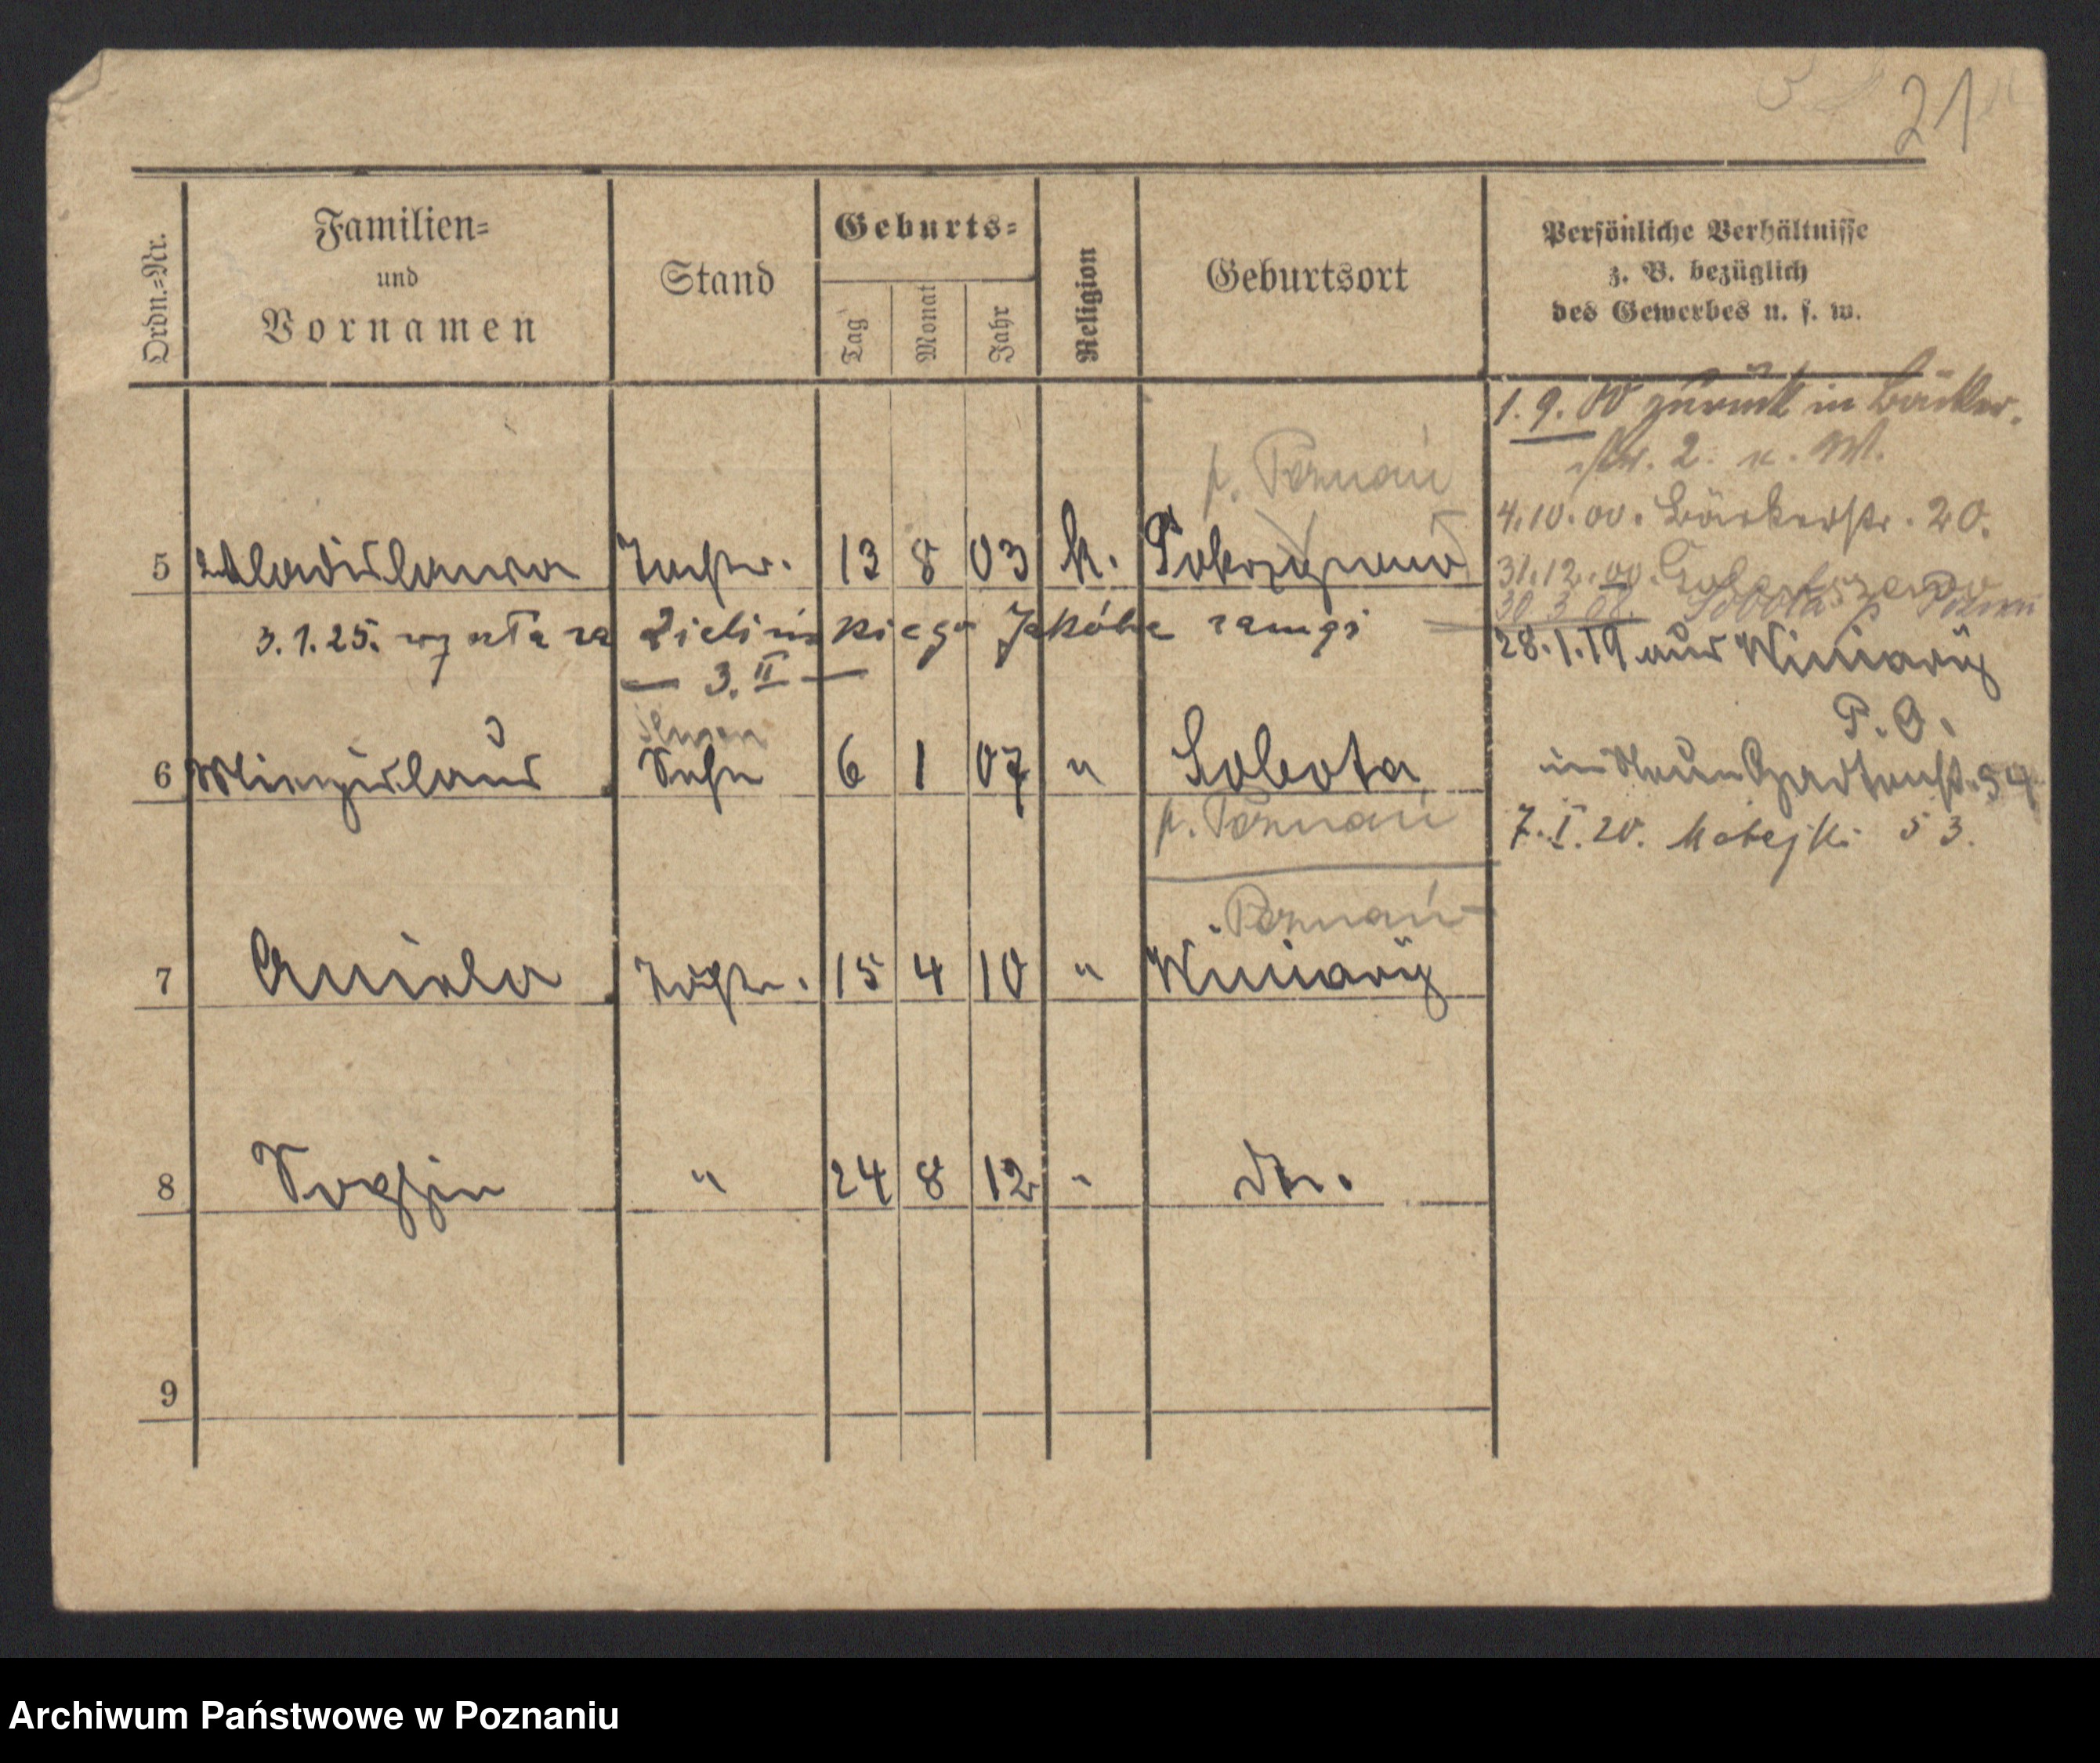 21
Ordn.=Nr.
Familien=
und
Vornamen
Stand
Geburts=
Tag
Monat
Jahr
Religion
Geburtsort
Persönliche Verhältnisse
z. B. bezüglich
des Gewerbes u. s. w.
1.9.00 zurück in Bäcker.
str. 2.
4.10.00. Bäckerstr. 20.
31.12.00.
30 3 02. Sobota p Poznań
28.1.19 aus Winiary
P. O.
in Neue Gartenstr. 54
7.I.20. Matejki 53.
p. Poznań
5 Wladislawa Tochter. 13 8 03 k. Pokrzywno
3.1.25. wyszła za Zielińskiego Jakóba zamąż
— 3.II —
6 Mieczislaus Sohn 6 1 07 " Sobota
p. Poznań
Poznań
7 Aniela Tochter. 15 4 10 " Winiary
8 Sophie " 24 8 12 " do.
9
Archiwum Państwowe w Poznaniu